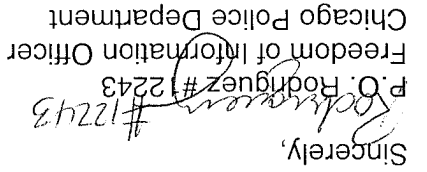 Sincerely,
Rodriguez #12243
P.O. Rodriguez #12243
Freedom of Information Officer
Chicago Police Department